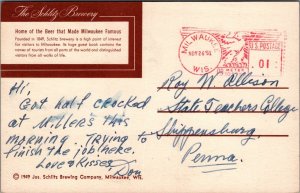 The Schlitz Brewery
Home of the Beer that Made Milwaukee Famous
Founded in 1849, Schlitz Brewery is a high point of interest
for visitors to Milwaukee. Its huge guest book contains the
names of tourists from all parts of the world and distinguished
visitors from all walks of life.
MILWAUKEE
WIS.
U.S. POSTAGE
.01
Hi,
Got half crocked
at Miller's this
morning. Trying to
finish the job here.
Love & Kisses
Don
Roy W. Allison
State Teachers College
Shippensburg,
Penna.
© 1949 Jos. Schlitz Brewing Company, Milwaukee, Wis.